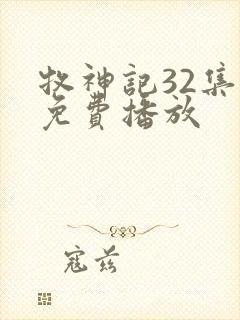 牧神記32集
免費播放
寇兹